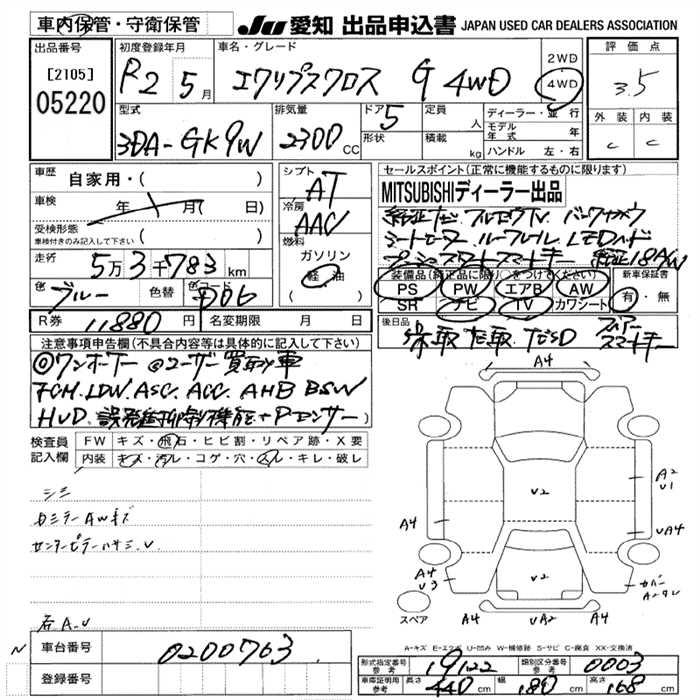 車内保管・守衛保管
JU 愛知 出品申込書 JAPAN USED CAR DEALERS ASSOCIATION
出品番号
[2105]
05220
初度登録年月
R2 5月
車名・グレード
エクリプスクロス G 4WD
2WD
4WD
評価点
3.5
外装 内装
C C
型式
3DA-GK9W
排気量
2300 CC
ドア 5
形状
定員 人
積載 kg
ディーラー・並行
モデル年式 年
ハンドル 左・右
車歴
自家用・( )
車検
年 月(日)
受検形態
車検付きのみ記入して下さい ( )
走行
5万3千783 km
色 ブルー 色替 色コード D06
R券 11880 円 名変期限 月 日
シフト
AT
冷房
AAC
燃料
ガソリン
軽油
セールスポイント(正常に機能するものに限ります)
MITSUBISHIディーラー出品
純正ナビ フルセグTV バックカメラ
シートヒーター ルーフレール LEDヘッド
プッシュスタートスマートキー 純正18AW
装備品(純正品に限り○をつけてください)
PS PW エアB AW
SR ナビ TV カワシート
新車保証書
有・無
後日品
保、取 スペアースマートキー
注意事項申告欄(不具合内容等は具体的に記入して下さい)
◎ワンオーナー ◎ユーザー買取り車
FCM.LDW.ASC.ACC.AHB BSW
HUD 誤発進抑制機能+Pセンサー
検査員記入欄
FW キズ・飛石・ヒビ割・リペア跡・X要
内装 キズ・汚レ・コゲ・穴・スレ・キレ・破レ
シミ
カドミラーAWキズ
センターピラーハサミ.U
右A.U
車台番号 0200763
登録番号
A4
A2
U1
U2
A4
UA4
A4
U3
U2
カバー
スペア
A4 UA2 A4
A-キズ E-エクボ U-凹み W-補修跡 S-サビ C-腐食 XX-交換済
型式指定番号 参考 19122 類別区分番号 参考 0003
車庫証明用 参考 長さ 440 cm 幅 180 cm 高さ 168 cm